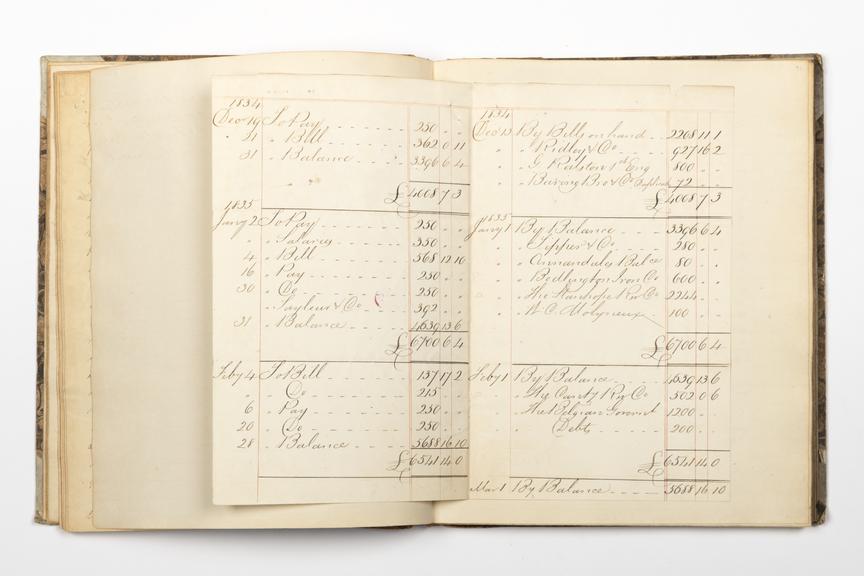 1834
Decr 19 To Pay 250 " "
" 21 " Bill 362 0 11
31 " Balance 3396 6 4
" "
£ 4008 7 3
1835
Jany 2 To Pay 250 " "
" " Salaries 350 " "
4 " Bill 568 12 10
16 " Pay 250 " "
30 " Do 250 " "
" & Co 392 " "
31 " Balance 4639 13 6
£ 6700 6 4
Feby 4 To Bill 137 17 2
" " Do 215 " "
6 " Pay 250 " "
20 " Do 250 " "
28 " Balance 5688 16 10
£ 6541 14 0
1834
Decr 13 By Bills on hand 2208 11 1
" " Ridley & Co 927 16 2
" " G Ralston 1st Eng 800 " "
" " Baring Bro & Co 72 " "
£ 4008 7 3
1835
Jany 1 By Balance 3396 6 4
" " Pepper & Co 280 " "
" " Annandales Balce 80 " "
" " Bedlington Iron Co 600 " "
" " The Stanhope Rw Co 2244 " "
" " W C Molyneux 100 " "
£ 6700 6 4
Feby 1 By Balance 4639 13 6
" " Rw Co 502 0 6
" " The Belgian Govermt 1200 " "
" " Debts 200 " "
£ 6541 14 0
Mar 1 By Balance 5688 16 10